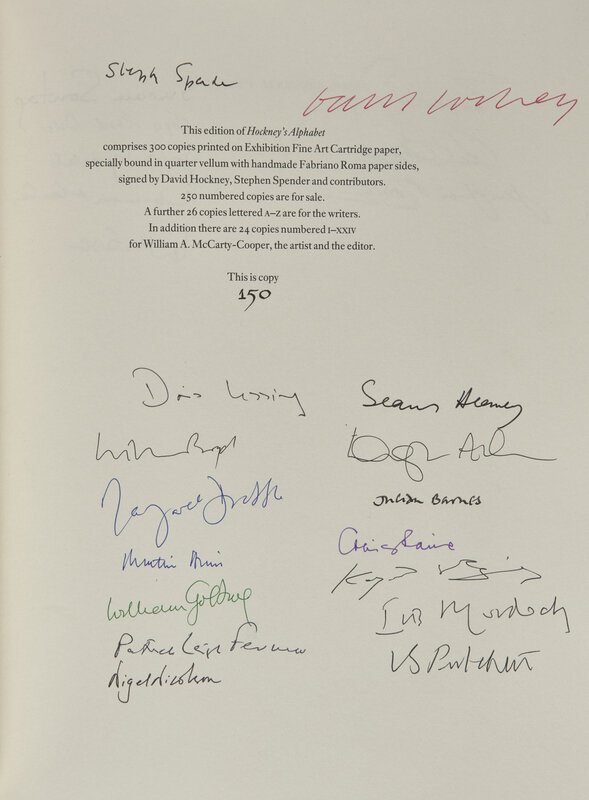 Stephen Spender
David Hockney
This edition of Hockney's Alphabet
comprises 300 copies printed on Exhibition Fine Art Cartridge paper,
specially bound in quarter vellum with handmade Fabriano Roma paper sides,
signed by David Hockney, Stephen Spender and contributors.
250 numbered copies are for sale.
A further 26 copies lettered A–Z are for the writers.
In addition there are 24 copies numbered I–XXIV
for William A. McCarty-Cooper, the artist and the editor.
This is copy
150
Doris Lessing
William Boyd
Margaret Drabble
Martin Amis
William Golding
Patrick Leigh Fermor
Nigel Nicolson
Seamus Heaney
Douglas Adams
Julian Barnes
Craig Raine
Iris Murdoch
VS Pritchett